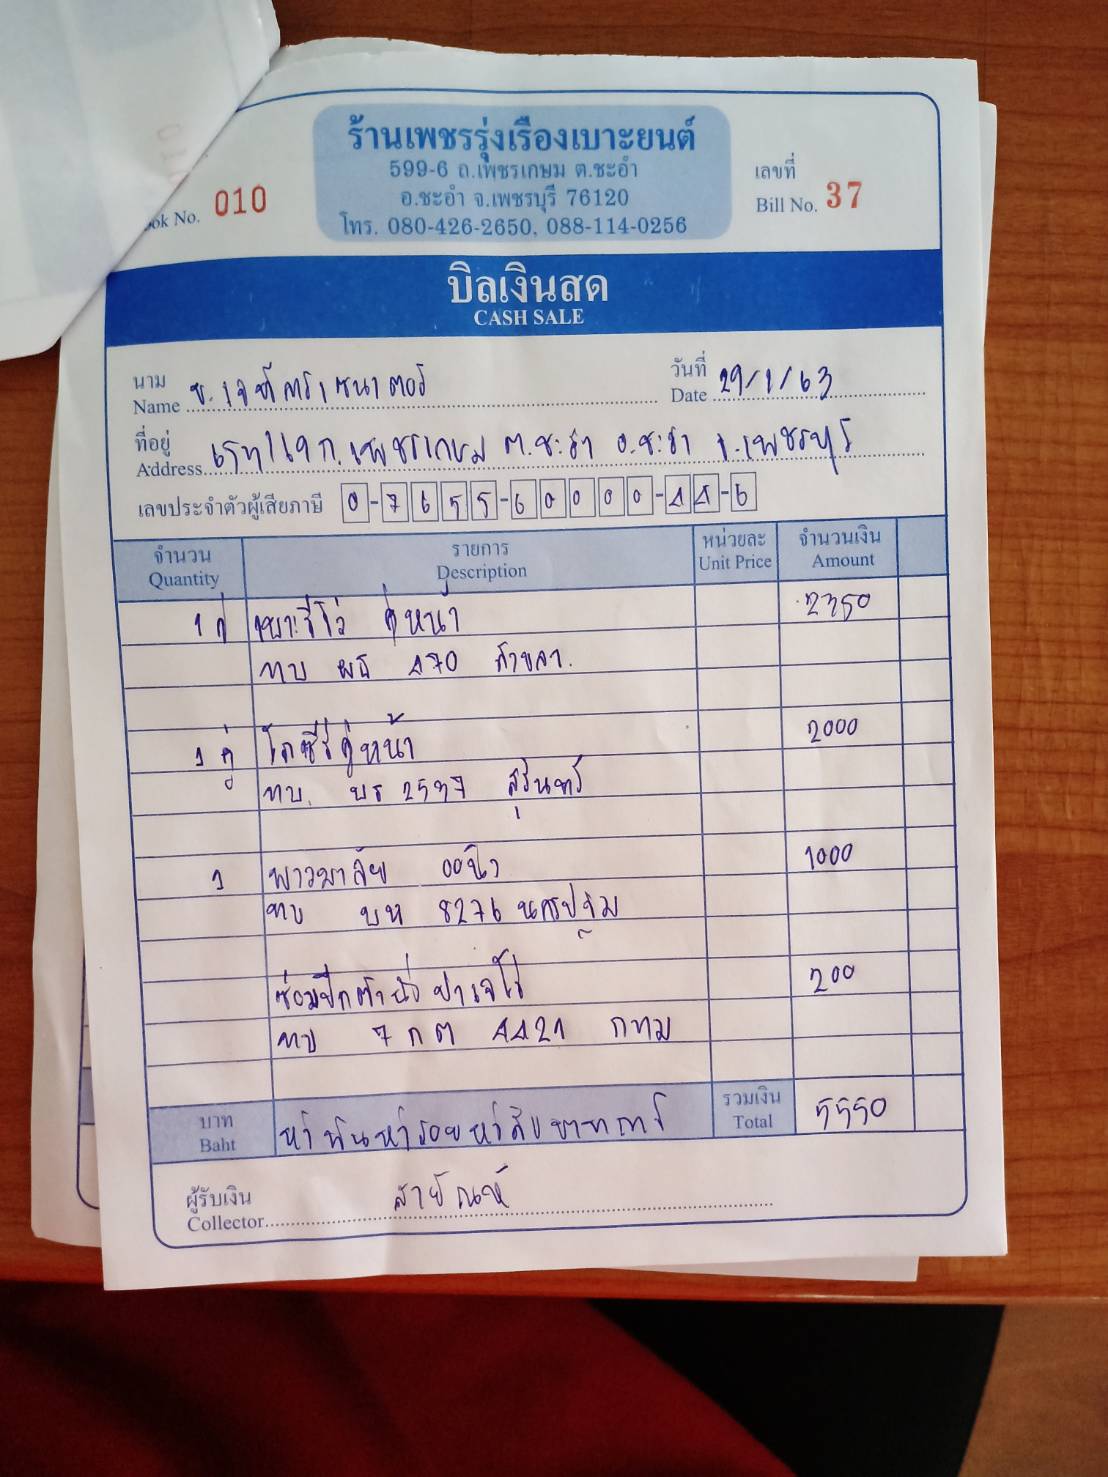 ร้านเพชรรุ่งเรืองเบาะยนต์
599-6 ถ.เพชรเกษม ต.ชะอำ
อ.ชะอำ จ.เพชรบุรี 76120
โทร. 080-426-2650, 088-114-0256
ok No. 010
เลขที่
Bill No. 37
บิลเงินสด
CASH SALE
นาม
Name
วันที่
Date 29/1/63
ที่อยู่
Address ถ.เพชรเกษม ต.ชะอำ อ.ชะอำ จ.เพชรบุรี
เลขประจำตัวผู้เสียภาษี 0-7655-60000-44-6
จำนวน รายการ หน่วยละ จำนวนเงิน
Quantity Description Unit Price Amount
1 คู่ เบาะวีโว่ คู่หน้า 2350
ทบ ผธ 470 สงขลา
1 คู่ คู่หน้า 2000
ทบ. บร 2537 สุรินทร์
1 พวงมาลัย 1000
ทบ บห 8276 นครปฐม
ปาเจโร่ 200
ทบ 7 กต 4421 กทม
บาท รวมเงิน
Baht ห้าพันห้าร้อยห้าสิบบาทถ้วน Total 5550
ผู้รับเงิน
Collector สายัณห์